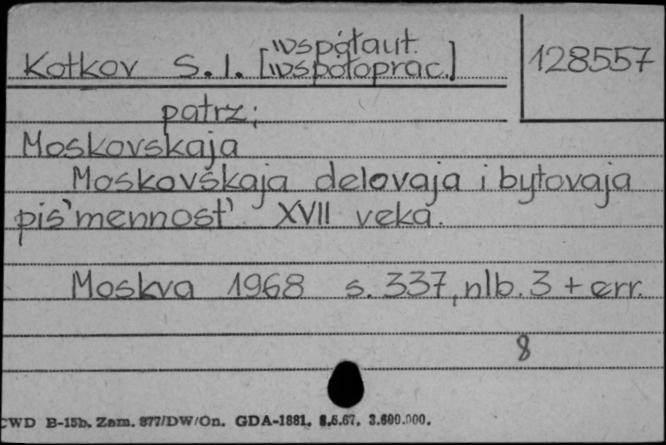 współaut.
Kotkov S. I. [współoprac.] 128557
patrz:
Moskovskaja
Moskovskaja delovaja i bytovaja
pis'mennost' XVII veka.
Moskva 1968 s. 337, nlb. 3 + err.
8
CWD B-15b. Zam. 877/DW/On. GDA-1881. 8.5.67. 3.600.000.